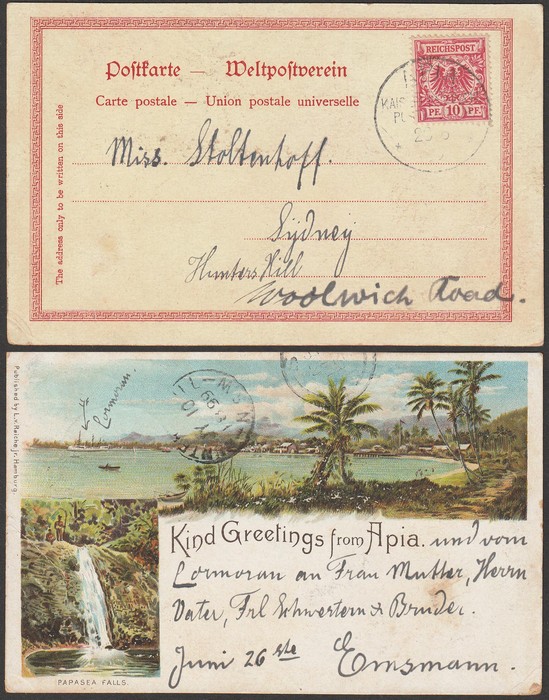 REICHSPOST
10 PF. 10
Postkarte — Weltpostverein
Carte postale — Union postale universelle
The address only to be written on this side
Miss. Stoltenhoff.
Sydney
Hunters Hill
Woolwich Road.
Published by L.v. Reiche jr. Hamburg.
Cormoran.
Kind Greetings from Apia. und vom
Cormoran an Frau Mutter, Herrn
Vater, Frl Schwestern & Bruder.
Juni 26 ste Emsmann.
PAPASEA FALLS.